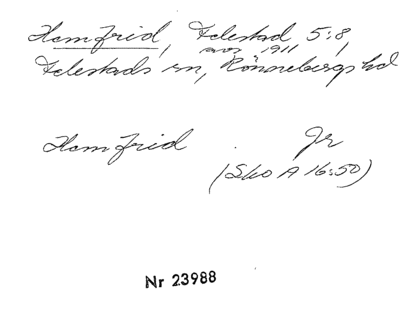 Hemfrid, Felestad 5:8,
avs 1911
Felestads sn, Rönnebergs hd
Hemfrid Jr
(Sko A 16:50)
Nr 23988